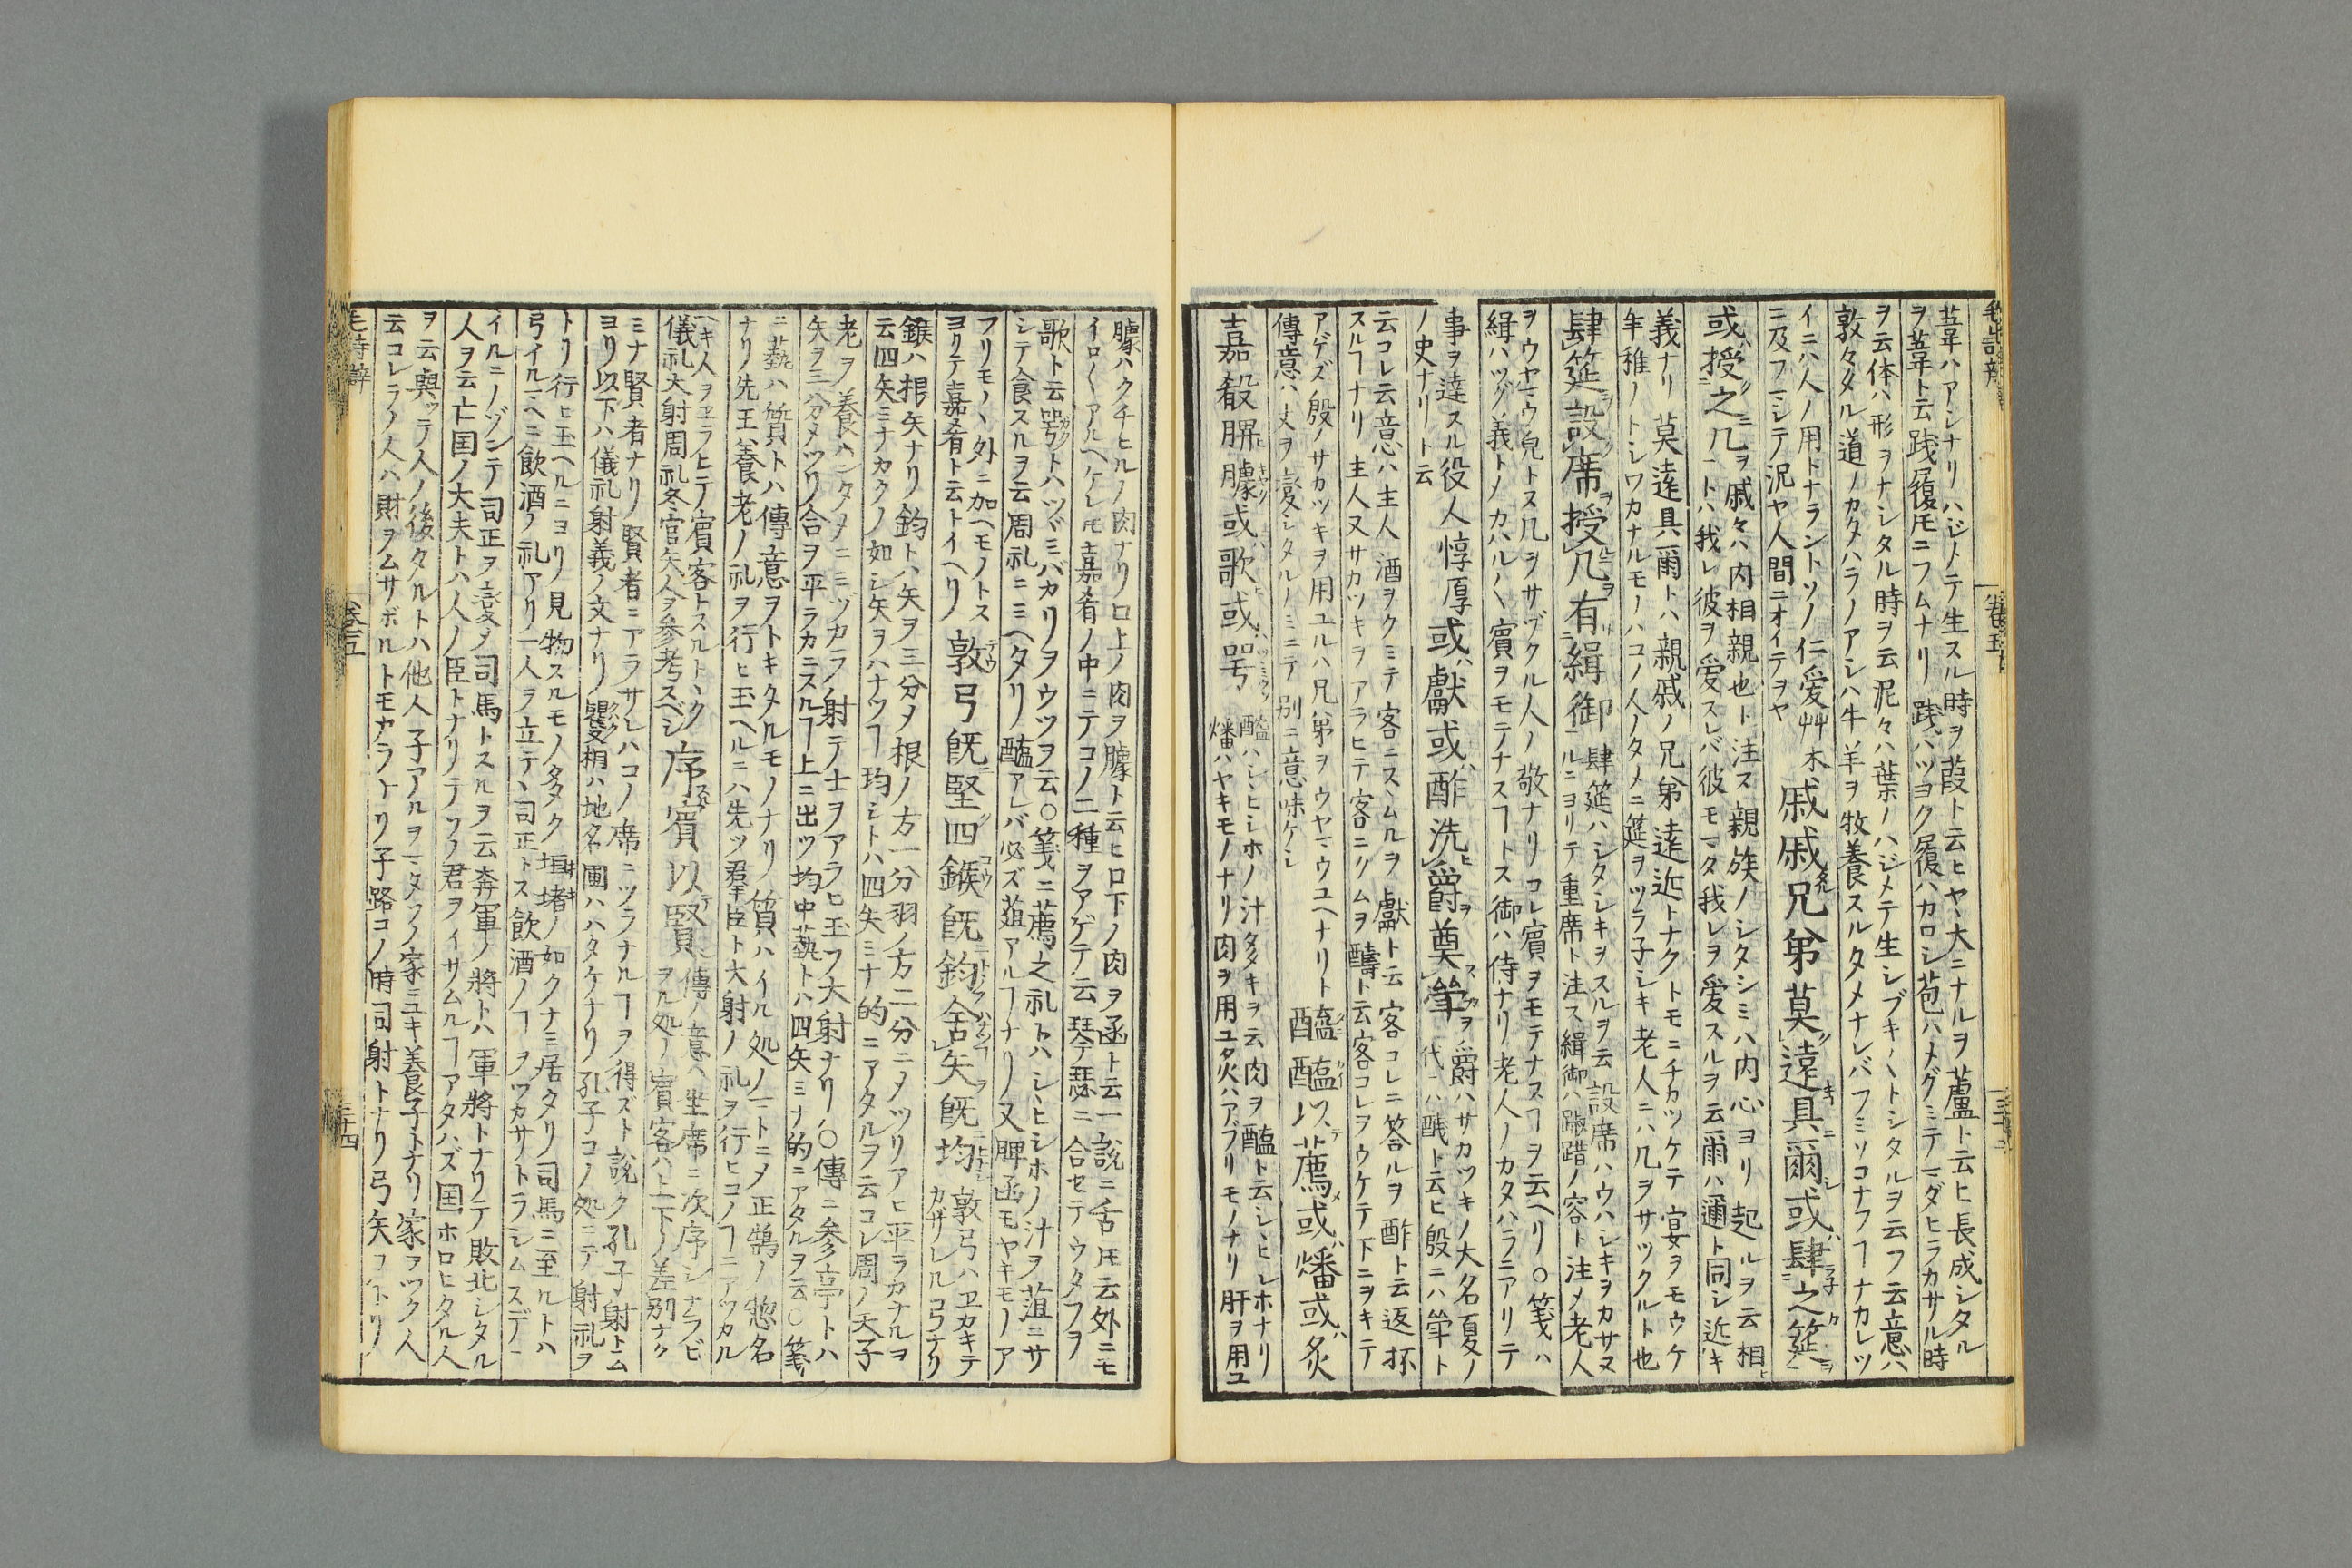 葦ハアシナリハジメテ生スル時ヲ葭ト云ヒヤヽ大ニナルヲ蘆ト云ヒ長成シタル
ヲ葦ト云践履ニフムナリ践ハツヨク履ハカロシ苞ハメグミテマダヒラカサル時
ヲ云体ハ形ヲナシタル時ヲ云泥々ハ葉ノハジメテ生シブキ〳〵トシタルヲ云フ云意ハ
敦々タル道ノカタハラノアシハ牛羊ヲ牧養スルタメナレバフミソコナフヿナカレツ
イニハ人ノ用トナラントソノ仁爱艸木
ニ及フマシテ況ヤ人間ニオイテヲヤ
戚戚兄弟莫遠具爾或肆之筵
或授之几
戚々ハ内相親也ト注ス親族ノシタシミハ内心ヨリ起ルヲ云相
トハ我レ彼ヲ爱スレバ彼モマタ我レヲ爱スルヲ云爾ハ邇ト同シ近キ
義ナリ莫遠具爾トハ親戚ノ兄弟遠近トナクトモニチカツケテ宴ヲモウケ
年稚ノトシワカナルモノハコノ人ノタメニ筵ヲツラ子シキ老人ニハ几ヲサツクルト也
肆筵設席授几有緝御
肆筵ハシタシキヲスルヲ云設席ハウハシキヲカサヌ
ルニヨリテ重席ト注ス緝御ハ踧踖ノ容ト注メ老人
ヲウヤマウ皃トス几ヲサヅクル人ノ敬ナリコレ賓ヲモテナスヿヲ云ヘリ○箋ハ
緝ハツグ義トメカハル〳〵賓ヲモテナスヿトス御ハ侍ナリ老人ノカタハラニアリテ
事ヲ達スル役人惇厚
ノ史ナリト云
或獻或酢洗爵奠斝
爵ハサカツキノ大名夏ノ
代ニハ醆ト云ヒ殷ニハ斝ト
云コレ云意ハ主人酒ヲクミテ客ニスヽムルヲ獻ト云客コレニ答ルヲ酢ト云返杯
スルヿナリ主人又サカツキヲアラヒテ客ニクムヲ醻ト云客コレヲウケテ下ニヲキテ
アゲズ殷ノサカツキヲ用ユルハ兄弟ヲウヤマウユヘナリト
傳意ハ丈ヲ変シタルノミニテ別ニ意味ケシ
醓醢以薦或燔或炙
嘉殽脾臄或歌或咢
醓ハシヒシホノ汁多キヲ云肉ヲ醢ト云シヽヒシホナリ
燔ハヤキモノナリ肉ヲ用ユ炙ハアブリモノナリ肝ヲ用ユ
臄ハクチヒルノ肉ナリ口上ノ肉ヲ臄ト云ヒ口下ノ肉ヲ函ト云一說ニ舌ト云外ニモ
イロ〳〵アルヘケレ嘉肴ノ中ニテコノ二種ヲアゲテ云琴瑟ニ合セテウタフヲ
歌ト云咢トハツヾミバカリヲウツヲ云○箋ニ薦之礼トハシヽヒシホノ汁ヲ菹ニサ
シテ食スルヲ云周礼ニミヘタリ醢アレバ必ズ菹アルヿナリ又脾函モヤキモノア
フリモノヽ外ニ加ヘモノトス
ヨリテ嘉肴ト云トイヘリ
敦弓既堅四鍭既鈞舍矢既均
敦弓ハヱカキテ
カザレル弓ナリ
鍭ハ根矢ナリ鈞トハ矢ヲ三分メ根ノ方一分羽ノ方二分ニメツリアヒ平ラカナルヲ
云四矢ミナカクノ如シ矢ヲハナツヿ均シトハ四矢ミナ的ニアタルヲ云コレ周ノ天子
老ヲ養ハンタメニミヅカラ射テ士ヲアラヒ玉フ大射ナリ○傳ニ参亭トハ
矢ヲ三分メツリ合ヲ平ラカニスルヿ上ニ出ツ均中蓺トハ四矢ミナ的ニアタルヲ云○箋
ニ蓺ハ質トハ傳意ヲトキタルモノナリ質ハイル処ノマトニメ正鵠ノ惣名
ナリ先王養老ノ礼ヲ行ヒ玉ヘルニハ先ツ羣臣ト大射ノ礼ヲ行ヒコノヿニアツカル
ヘキ人ヲヱラヒテ賓客トスルトヽク
儀礼大射周礼冬官矢人ヲ参考スベシ
序賓以賢
傳ノ意ハ坐席ニ次序シナラビ
ヲル処ノ賓客ハ上下ノ差別ナク
ミナ賢者ナリ賢者ニアラサレハコノ席ニツラナルヿヲ得ズト說ク孔子射トム
ヨリ以下ハ儀礼射義ノ文ナリ矍相ハ地名圃ハハタケナリ孔子コノ処ニテ射礼ヲ
トリ行ヒ玉ヘルニヨリ見物スルモノ多ク垣堵ノ如クナミ居タリ司馬ニ至ルトハ
弓イルマヘニ飲酒ノ礼アリ一人ヲ立テヽ司正トス飲酒ノヿヲツカサトラシムスデニ
イルニノゾンテ司正ヲ変メ司馬トスルヲ云奔軍ノ將トハ軍將トナリテ敗北シタル
人ヲ云亡国ノ大夫トハ人ノ臣トナリテソノ君ヲイサムルヿアタハズ国ホロヒタル人
ヲ云與ッテ人ノ後タルトハ他人子アルヲマタソノ家ニユキ養子トナリ家ヲツク人
云コレラノ人ハ財ヲムサボルトモカラナリ子路コノ時司射トナリ弓矢コトリ
卷五